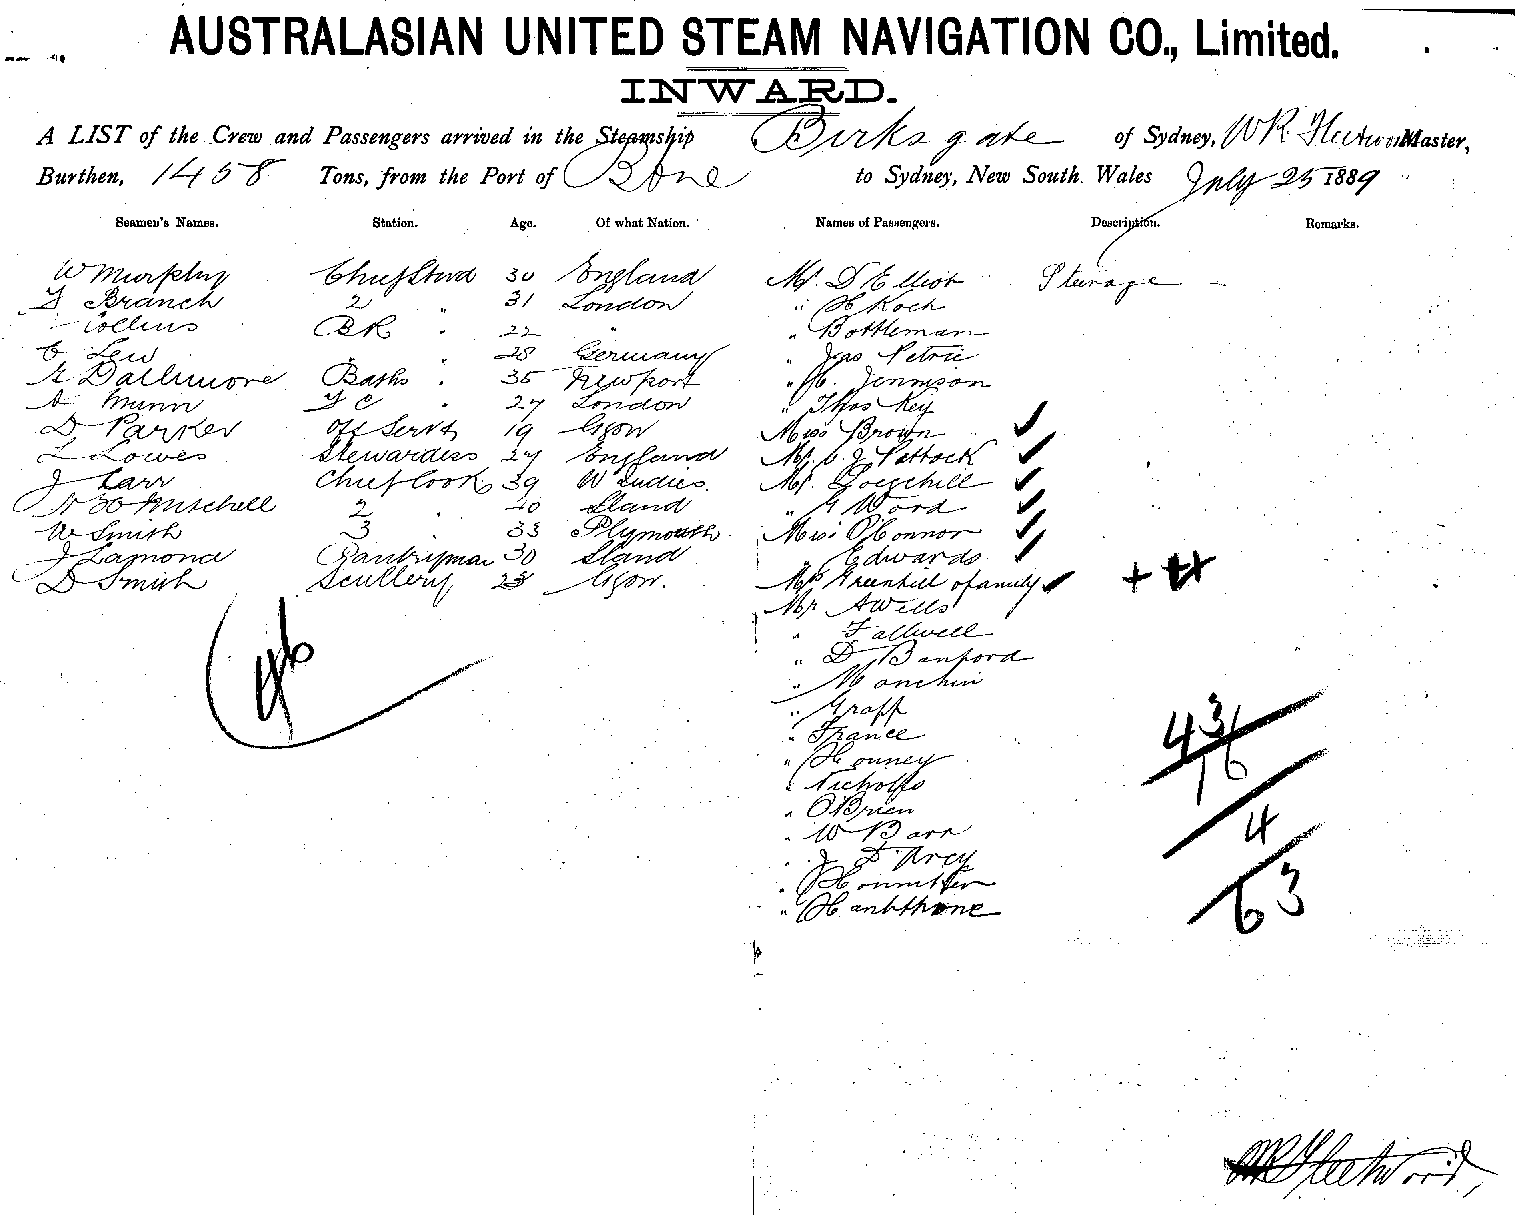 AUSTRALASIAN UNITED STEAM NAVIGATION CO., Limited.
INWARD.
A LIST of the Crew and Passengers arrived in the Steamship Birksgate of Sydney, WR Fleetwood Master,
Burthen, 1458 Tons, from the Port of Bbne to Sydney, New South Wales July 25 1889
Seamen's Names. Station. Age. Of what Nation. Names of Passengers. Description. Remarks.
W Murphy Chief Stwd 30 England Mr D Elliot Steerage
Branch 2 " 31 London " H Koch
Collins BR " 22 " " Bottleman
C Lew " " 28 Germany " Jas Petrie
Dallimore Baths " 35 Newport " H. Jennison
A Munn " 27 London " Thos Key
D Parker Off Servt 19 Ggow Miss Brown
L Lowes Stewardess 27 England Mr J Pattock
J Carr Chief Cook 39 W Indies. Mr
Mitchell 2 " 40 Sland " G Word
W Smith 3 " 33 Plymouth Miss O'Connor
J Lamond Pantryman 30 Sland " Edwards
D Smith Scullery 23 Ggow. Mrs Greenhill & family
Mr A Wells
" Fallwell
" D Banford
" Manchin
" Grapp
" France
" Honney
" Nicholls
" O'Brien
" W Barr
" J D'Arcy
"
" Hanbthorne
46
43
16
4
63
WR Fleetwood,